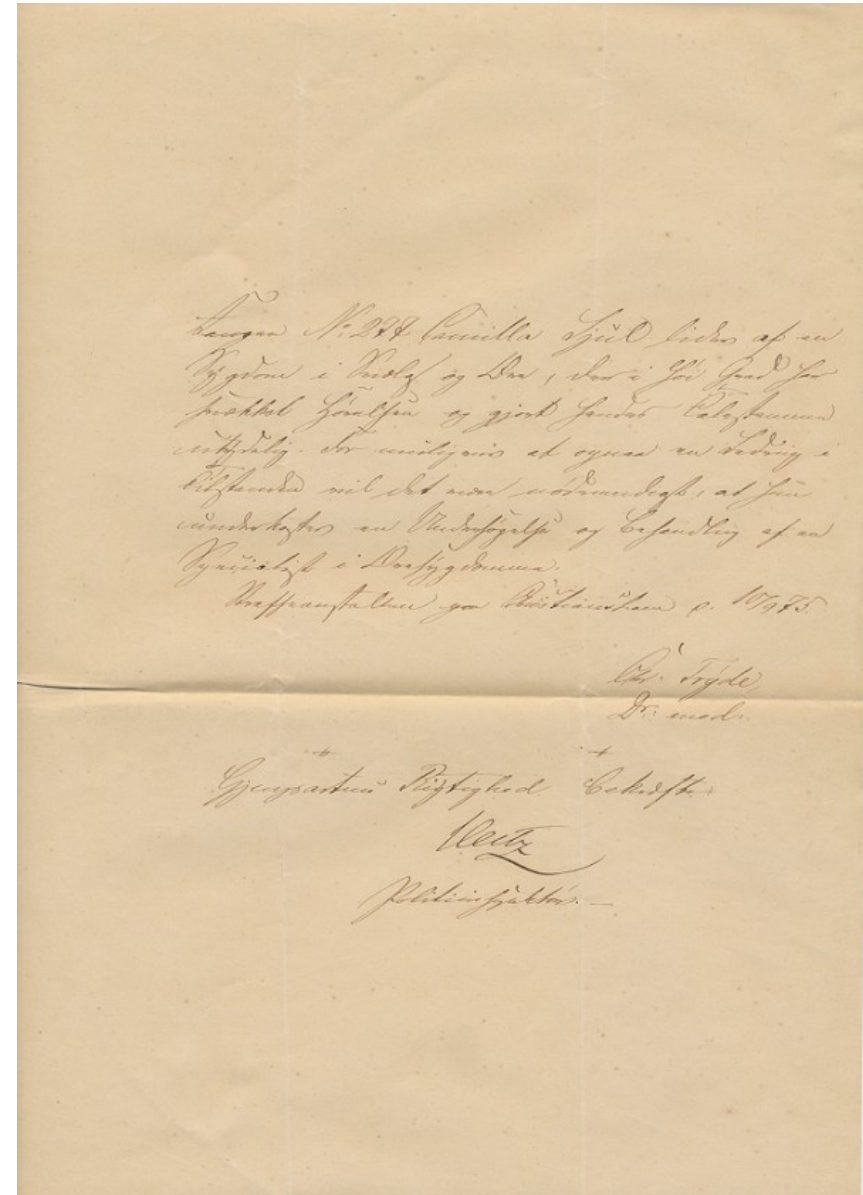 Fangen No 277 Camilla Hjul lider af en
Sygdom i Svælg og Øre, der i høi Grad har
svækket Hørelsen og gjort hendes Talestemme
utydelig. For muligviis at opnaa en Bedring i
Tilstanden vil det være nødvendigt, at hun
underkastes en Undersøgelse og Behandling af en
Specialist i Øresygdomme.
Straffeanstalten paa Christianshavn d. 10/9 75.
Chr. Tryde,
Dr. med.
Gjenpartens Rigtighed bekræftes.
Politiinspektør.